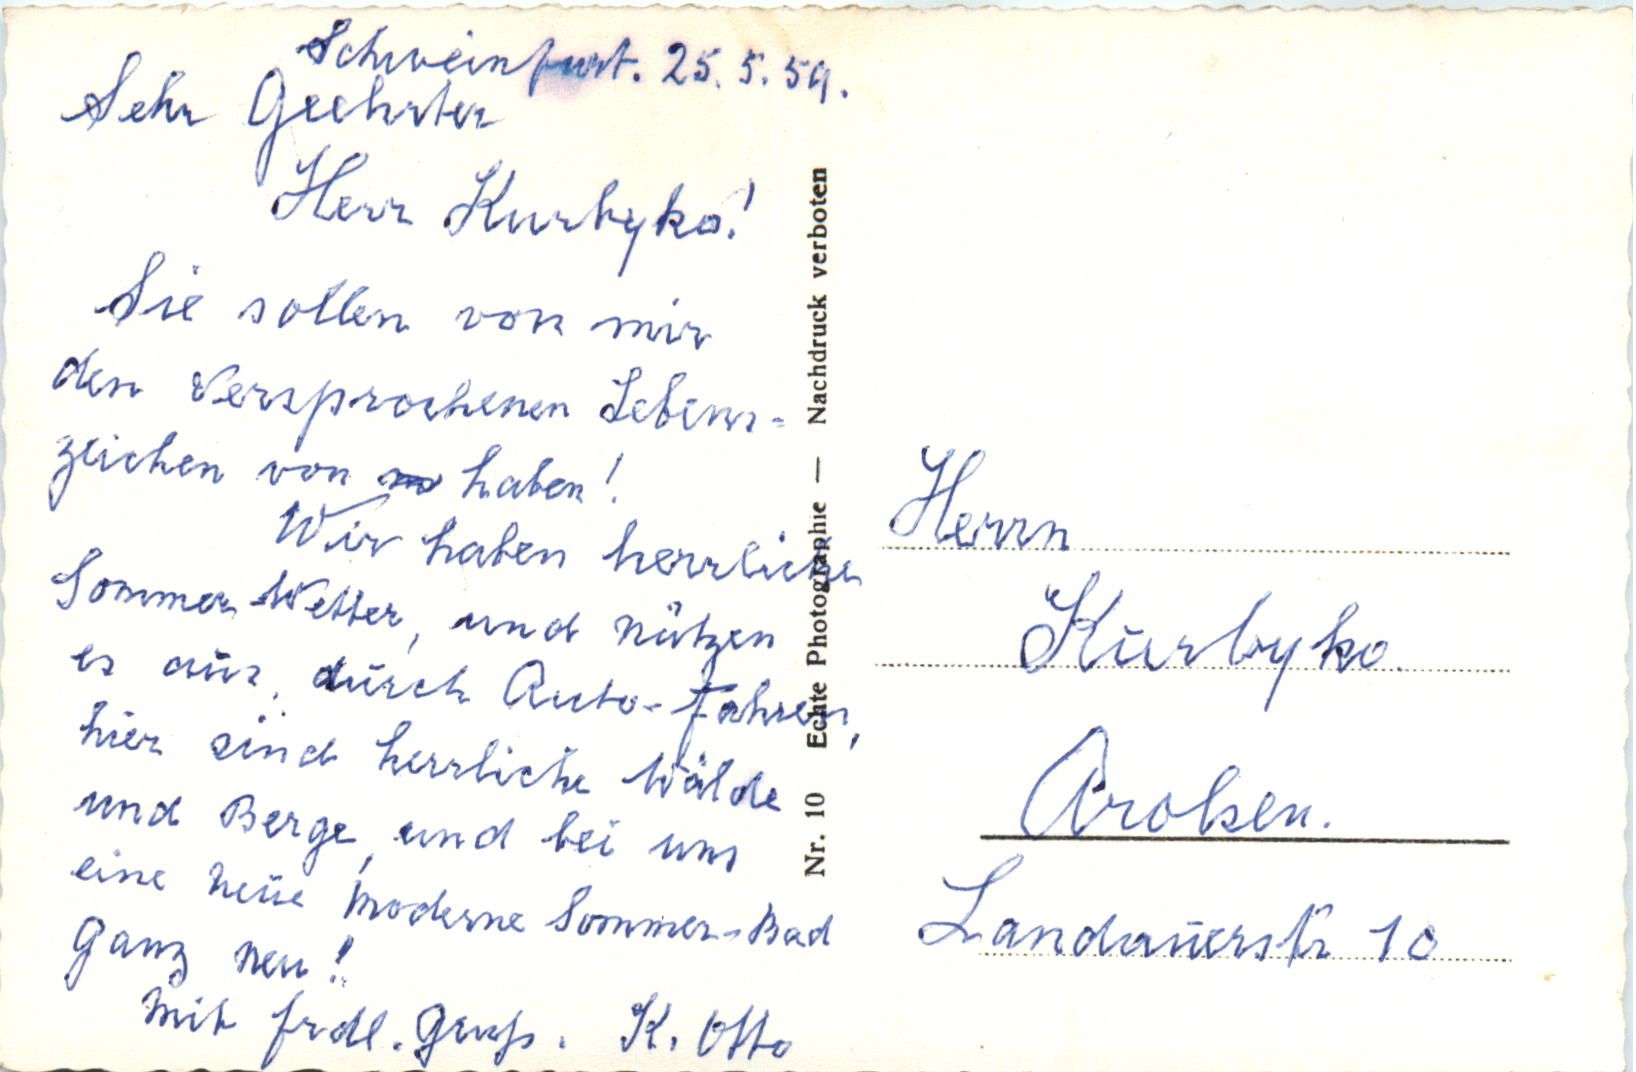 Schweinfurt. 25. 5. 59.
Sehr Geehrter
Herr Kurbyko!
Sie sollen von mir
den Versprochenen Lebens-
zeichen von haben!
Wir haben herrliche
Sommer Wetter, und nützen
es aus, durch Auto-Fahren,
hier sind herrliche Wälde
und Berge, und bei uns
eine neue moderne Sommer-Bad
Ganz neu!
Mit frdl. Gruß. K. Otto
Nr. 10 Echte Photographie — Nachdruck verboten
Herrn
Kurbyko.
Arolsen.
Landauerstr 10